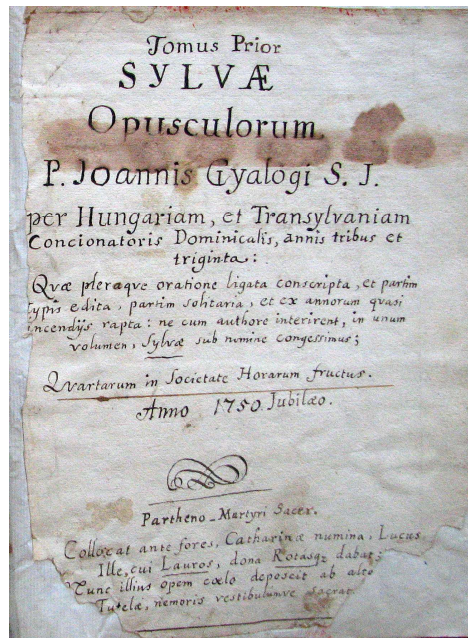 Tomus Prior
SYLVÆ
Opusculorum
P. Joannis Gyalogi S. J.
per Hungariam, et Transylvaniam
Concionatoris Dominicalis, annis tribus et
triginta:
Quæ pleraqve oratione ligata conscripta, et partim
typis edita, partim solitaria, et ex annorum quasi
incendijs rapta: ne cum authore interirent, in unum
volumen, Sylvæ sub nomine congessimus;
Quartarum in Societate Horarum fructus.
Anno 1750 Jubilæo.
Partheno-Martyri Sacer.
Collocat ante fores, Catharinæ numina, Lucus
Ille, cui Lauros, dona Rotasq; dabat;
Nunc illius opem cœlo deposcit ab alto
Tutelæ, nemoris vestibulumve sacrat.